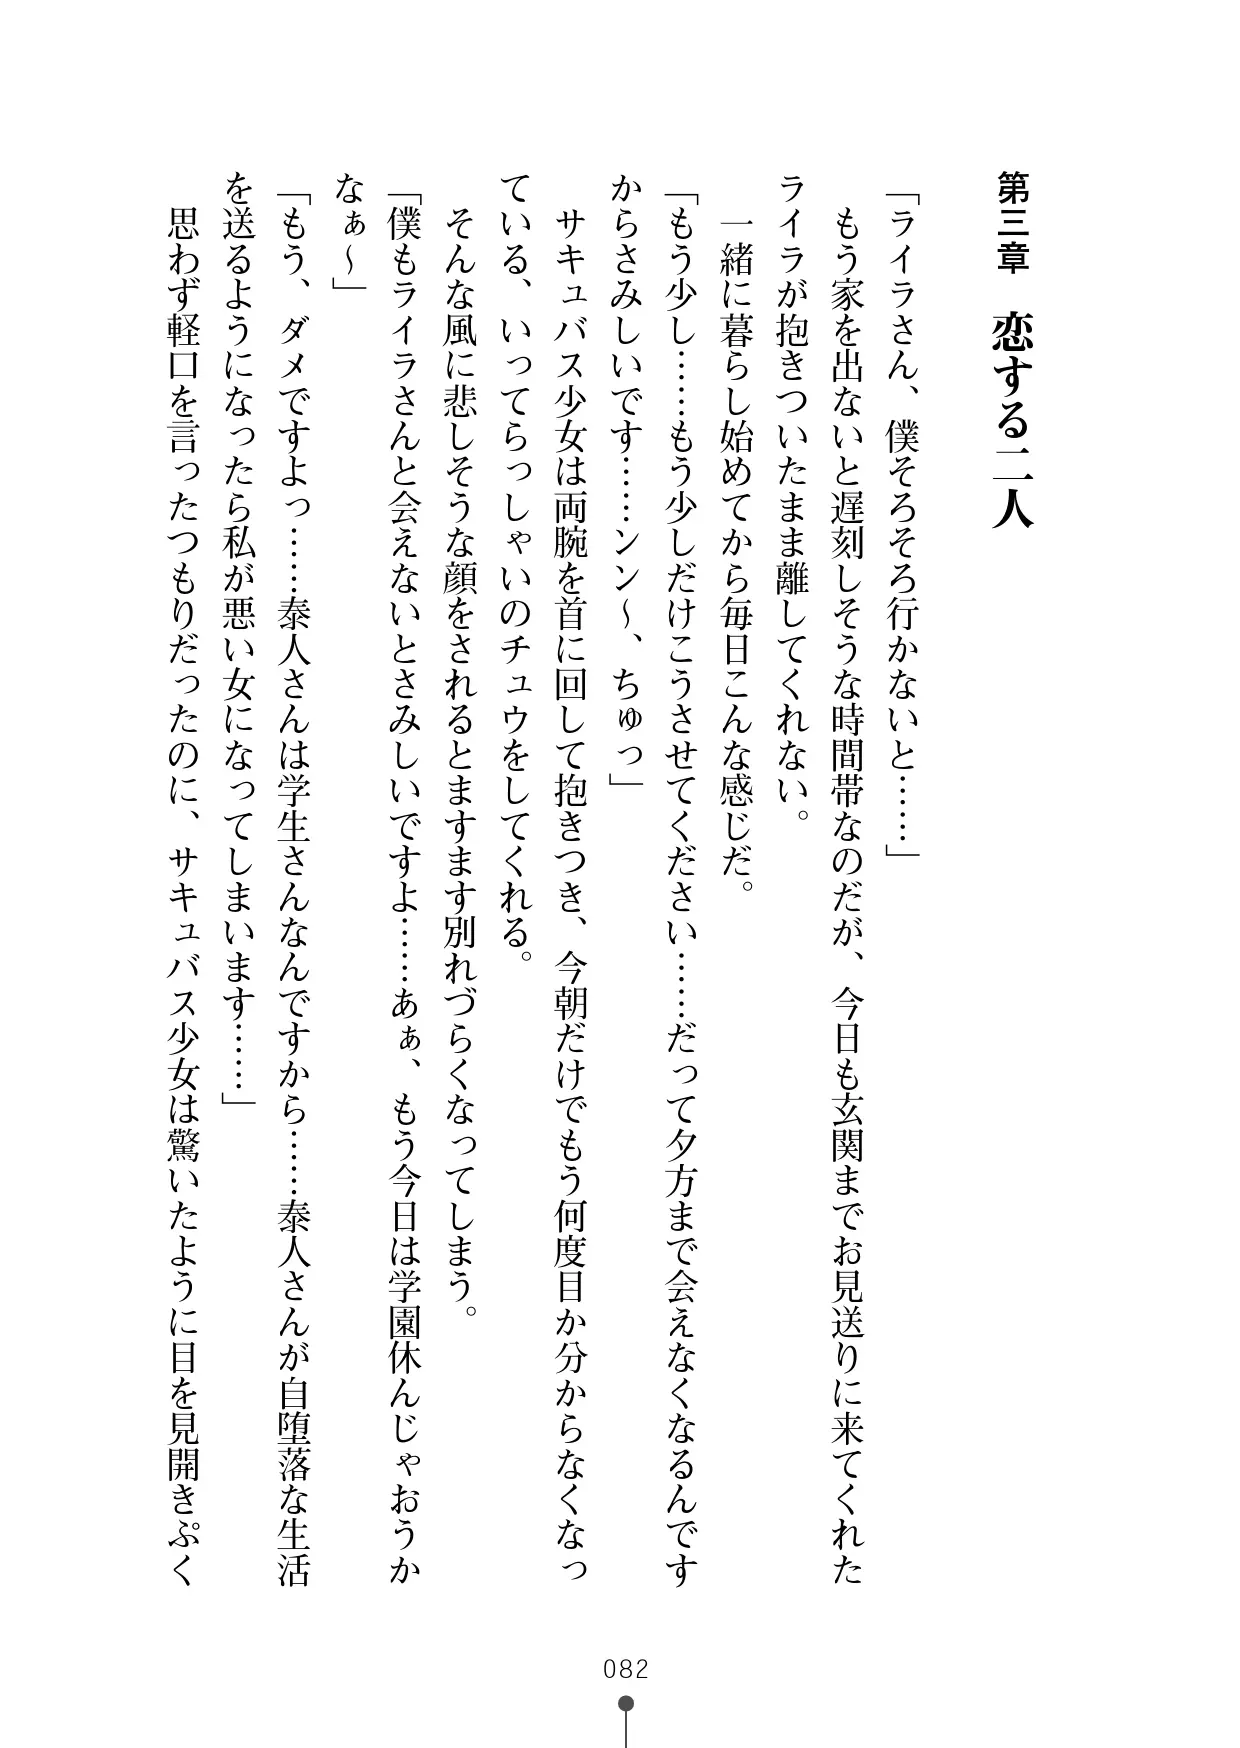 第三章　恋する二人
「ライラさん、僕そろそろ行かないと……」
　もう家を出ないと遅刻しそうな時間帯なのだが、今日も玄関までお見送りに来てくれた
ライラが抱きついたまま離してくれない。
　一緒に暮らし始めてから毎日こんな感じだ。
「もう少し……もう少しだけこうさせてください……だって夕方まで会えなくなるんです
からさみしいです……ンン〜、ちゅっ」
　サキュバス少女は両腕を首に回して抱きつき、今朝だけでもう何度目か分からなくなっ
ている、いってらっしゃいのチュウをしてくれる。
　そんな風に悲しそうな顔をされるとますます別れづらくなってしまう。
「僕もライラさんと会えないとさみしいですよ……あぁ、もう今日は学園休んじゃおうか
なぁ〜」
「もう、ダメですよっ……泰人さんは学生さんなんですから……泰人さんが自堕落な生活
を送るようになったら私が悪い女になってしまいます……」
　思わず軽口を言ったつもりだったのに、サキュバス少女は驚いたように目を見開きぷく
082